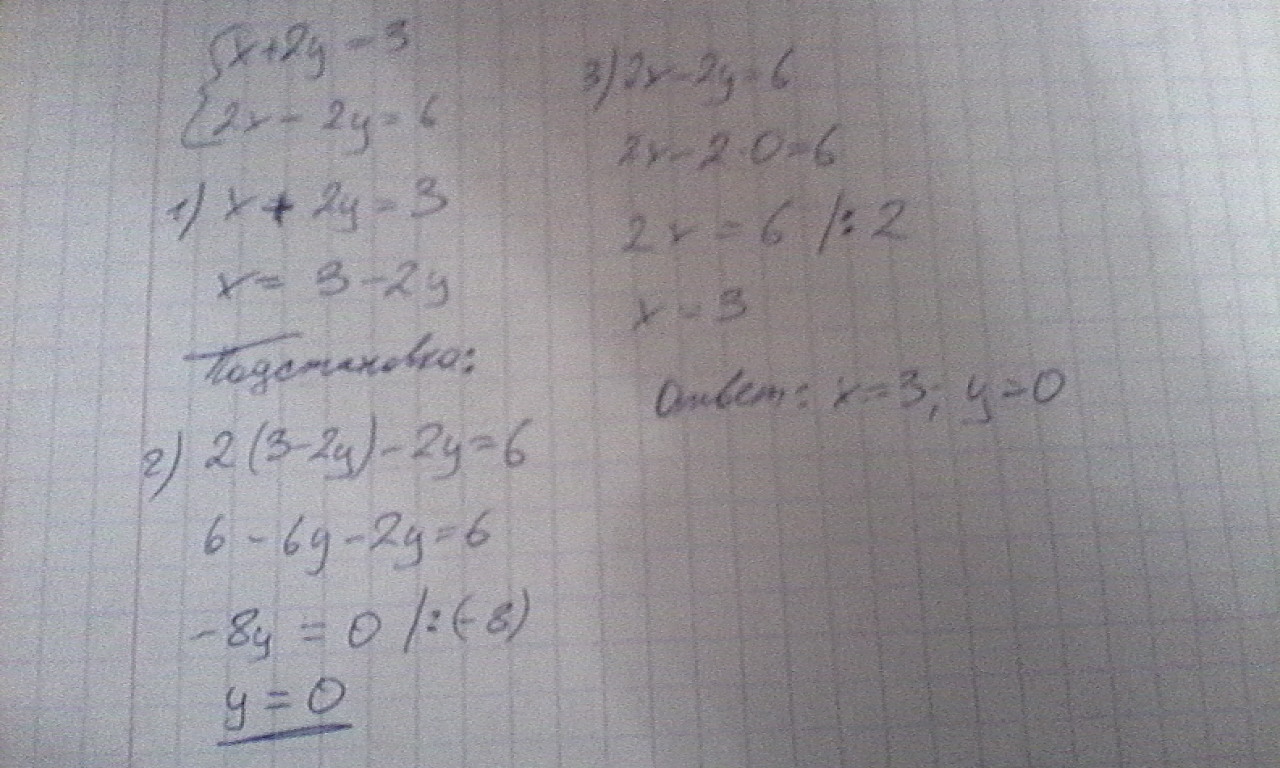 {x+2y=3
{2x-2y=6
1) x+2y=3
x=3-2y
Подстановка:
2) 2(3-2y)-2y=6
6-6y-2y=6
-8y=0 /:(-8)
y=0
3) 2x-2y=6
2x-2·0=6
2x=6 /:2
x=3
Ответ: x=3; y=0